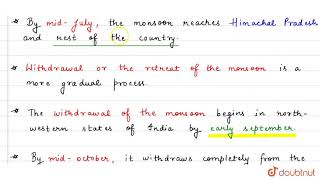 → By mid-July, the monsoon reaches Himachal Pradesh
and rest of the country.
→ Withdrawal or the retreat of the monsoon is a
more gradual process.
→ The withdrawal of the monsoon begins in north-
western states of India by early september.
→ By mid-october, it withdraws completely from the
doubtnut